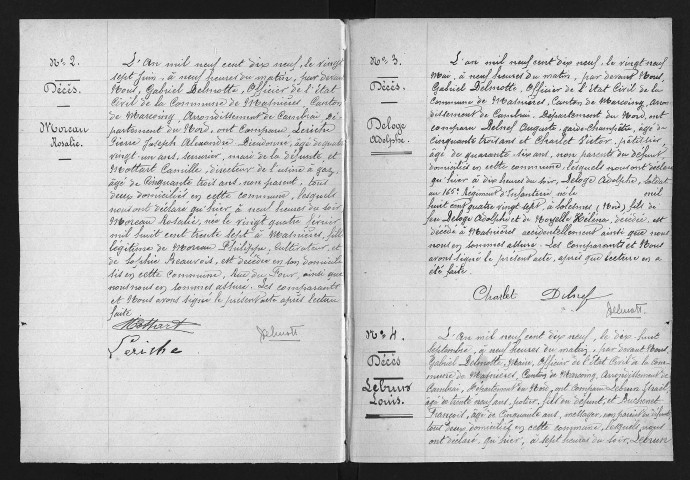 N° 2.
Décès.
Moreau
Rosalie.
L'An mil neuf cent dix neuf, le vingt
sept Juin, à neuf heures du matin, par devant
Nous, Gabriel Delmotte, Officier de l'Etat
Civil de la Commune de Masnières, Canton
de Marcoing, Arrondissement de Cambrai Dé-
partement du Nord, ont comparu Leriche
Pierre Joseph Alexandre Dieudonné, âgé de quatre
vingt un ans, serrurier, mari de la défunte, et
Mottart Camille, directeur de l'usine à gaz,
âgé de Cinquante trois ans, non parent, tous
deux domiciliés en cette commune, lesquels
nous ont déclaré qu'hier, à neuf heures du soir,
Moreau Rosalie, née le vingt quatre février
mil huit cent trente sept à Masnières, fille
légitime de Moreau Philippe, Cultivateur, et
de Sophie Beauvois, est décédée en son domicile
sis en cette Commune, Rue du Four, ainsi que
nous nous en sommes assuré. Les comparants
et Nous avons signé le présent acte après lecture
faite
Mottart
Delmott
Leriche
N° 3.
Décès.
Deloge
Adolphe.
L'an mil neuf cent dix neuf, le vingt neuf
Mai, à neuf heures du matin, par devant Nous,
Gabriel Delmotte, Officier de l'Etat Civil de la
Commune de Masnières, Canton de Marcoing, Arron-
dissement de Cambrai, Département du Nord, ont
comparu Delnef Auguste, garde-Champêtre, âgé de
Cinquante trois ans et Charlet Victor, pâtissier,
âgé de quarante six ans, non parents du défunt,
domiciliés en cette commune, lesquels nous ont déclaré
qu'hier à dix heures du soir, Deloge Adolphe, Soldat
au 165e Régiment d'Infanterie, né le mil
huit cent quatre vingt sept, à Solesmes (Nord), fils de
feu Deloge Adolphe et de Noyelle Héléna, décédée, est
décédé à Masnières accidentellement ainsi que nous
nous en sommes assuré. Les Comparants et Nous
avons signé le présent acte, après que lecture en a
été faite.
Charlet Delnef
Delmott
N° 4.
Décès
Lebrun
Louis.
L'an mil neuf cent dix neuf, le dix huit
Septembre, à neuf heures du matin, par devant Nous,
Gabriel Delmotte, Maire, Officier de l'Etat Civil de la com-
mune de Masnières, Canton de Marcoing, Arrondissement de
Cambrai, Département du Nord, ont Comparu Lebrun
âgé de trente neuf ans, potier, fils du défunt, et
François, âgé de Cinquante ans, ménager, non parent du défunt
tous deux domiciliés en cette commune, lesquels nous
ont déclaré qu'hier, à sept heures du soir, Lebrun